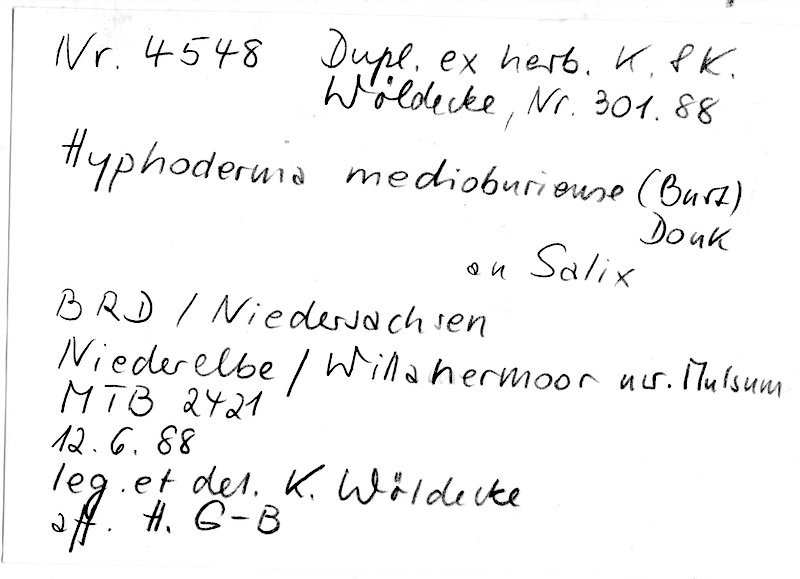 Nr. 4548 Dupl. ex herb. K. & K.
Wöldecke, Nr. 301.88
Hyphoderma medioburiense (Burt)
Donk
an Salix
BRD / Niedersachsen
Niederelbe / Willahermoor nw. Mulsum
MTB 2421
12.6.88
leg. et det. K. Wöldecke
aff. H. G-B